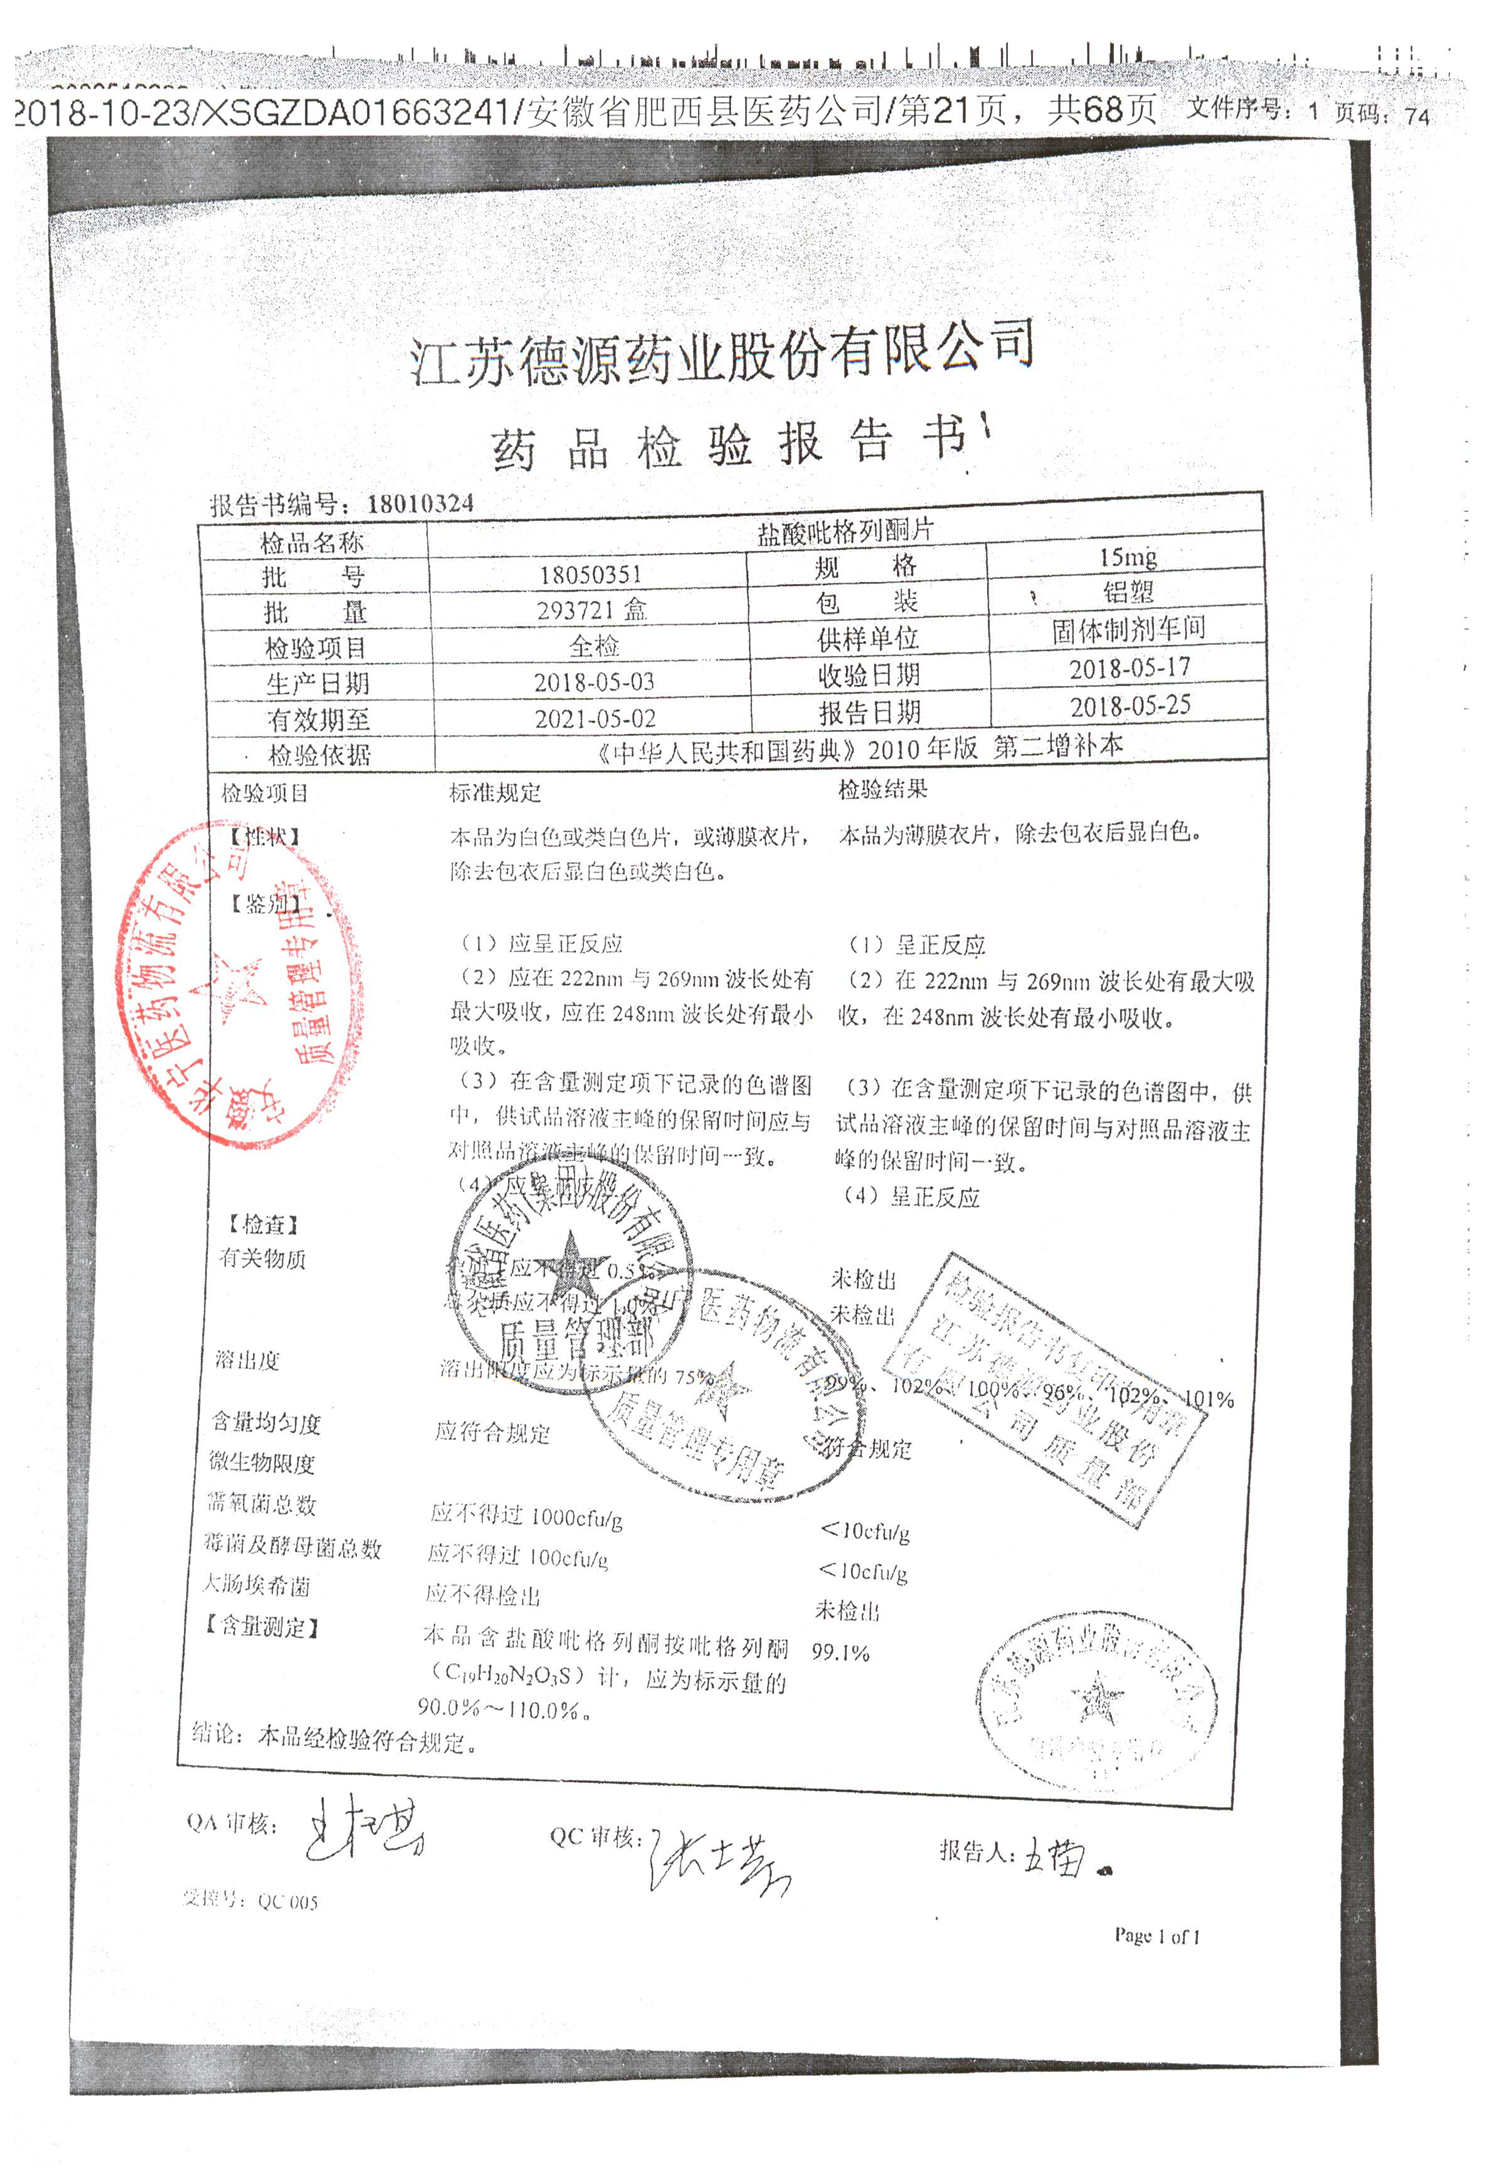 2018-10-23/XSGZDA01663241/安徽省肥西县医药公司/第21页，共68页 文件序号：1 页码：74
江苏德源药业股份有限公司
药品检验报告书
报告书编号：18010324
检品名称 盐酸吡格列酮片
批 号 18050351 规 格 15mg
批 量 293721 盒 包 装 铝塑
检验项目 全检 供样单位 固体制剂车间
生产日期 2018-05-03 收验日期 2018-05-17
有效期至 2021-05-02 报告日期 2018-05-25
检验依据 《中华人民共和国药典》2010 年版 第二增补本
检验项目 标准规定 检验结果
【性状】 本品为白色或类白色片，或薄膜衣片， 本品为薄膜衣片，除去包衣后显白色。
除去包衣后显白色或类白色。
【鉴别】
（1）应呈正反应 （1）呈正反应
（2）应在 222nm 与 269nm 波长处有 （2）在 222nm 与 269nm 波长处有最大吸
最大吸收，应在 248nm 波长处有最小 收，在 248nm 波长处有最小吸收。
吸收。
（3）在含量测定项下记录的色谱图 （3）在含量测定项下记录的色谱图中，供
中，供试品溶液主峰的保留时间应与 试品溶液主峰的保留时间与对照品溶液主
对照品溶液主峰的保留时间一致。 峰的保留时间一致。
（4）应呈正反应 （4）呈正反应
【检查】
有关物质 应不得过 0.5% 未检出
总杂质应不得过 1.0% 未检出
溶出度 溶出限度应为标示量的 75% 99%、102%、100%、96%、102%、101%
含量均匀度 应符合规定 符合规定
微生物限度
需氧菌总数 应不得过 1000cfu/g ＜10cfu/g
霉菌及酵母菌总数 应不得过 100cfu/g ＜10cfu/g
大肠埃希菌 应不得检出 未检出
【含量测定】 本品含盐酸吡格列酮按吡格列酮 99.1%
（C₁₉H₂₀N₂O₃S）计，应为标示量的
90.0%～110.0%。
结论：本品经检验符合规定。
安徽华宁医药物流有限公司
质量管理专用章
省医药(集团)股份有限公司
质量管理部
医药物流有限公司
质量管理专用章
检验报告书复印专用章
江苏德源药业股份
有限公司质量部
江苏德源药业股份有限公司
QA 审核： QC 审核： 报告人：
受控号：QC 005
Page 1 of 1